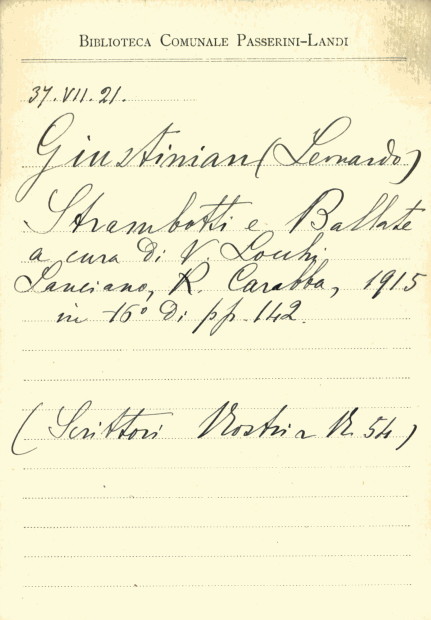 BIBLIOTECA COMUNALE PASSERINI-LANDI
37.VII.21.
Giustinian (Leonardo)
Strambotti e Ballate
a cura di V. Locchi
Lanciano, R. Carabba, 1915
in 16° di pp. 142.
(Scrittori Nostri N. 54)